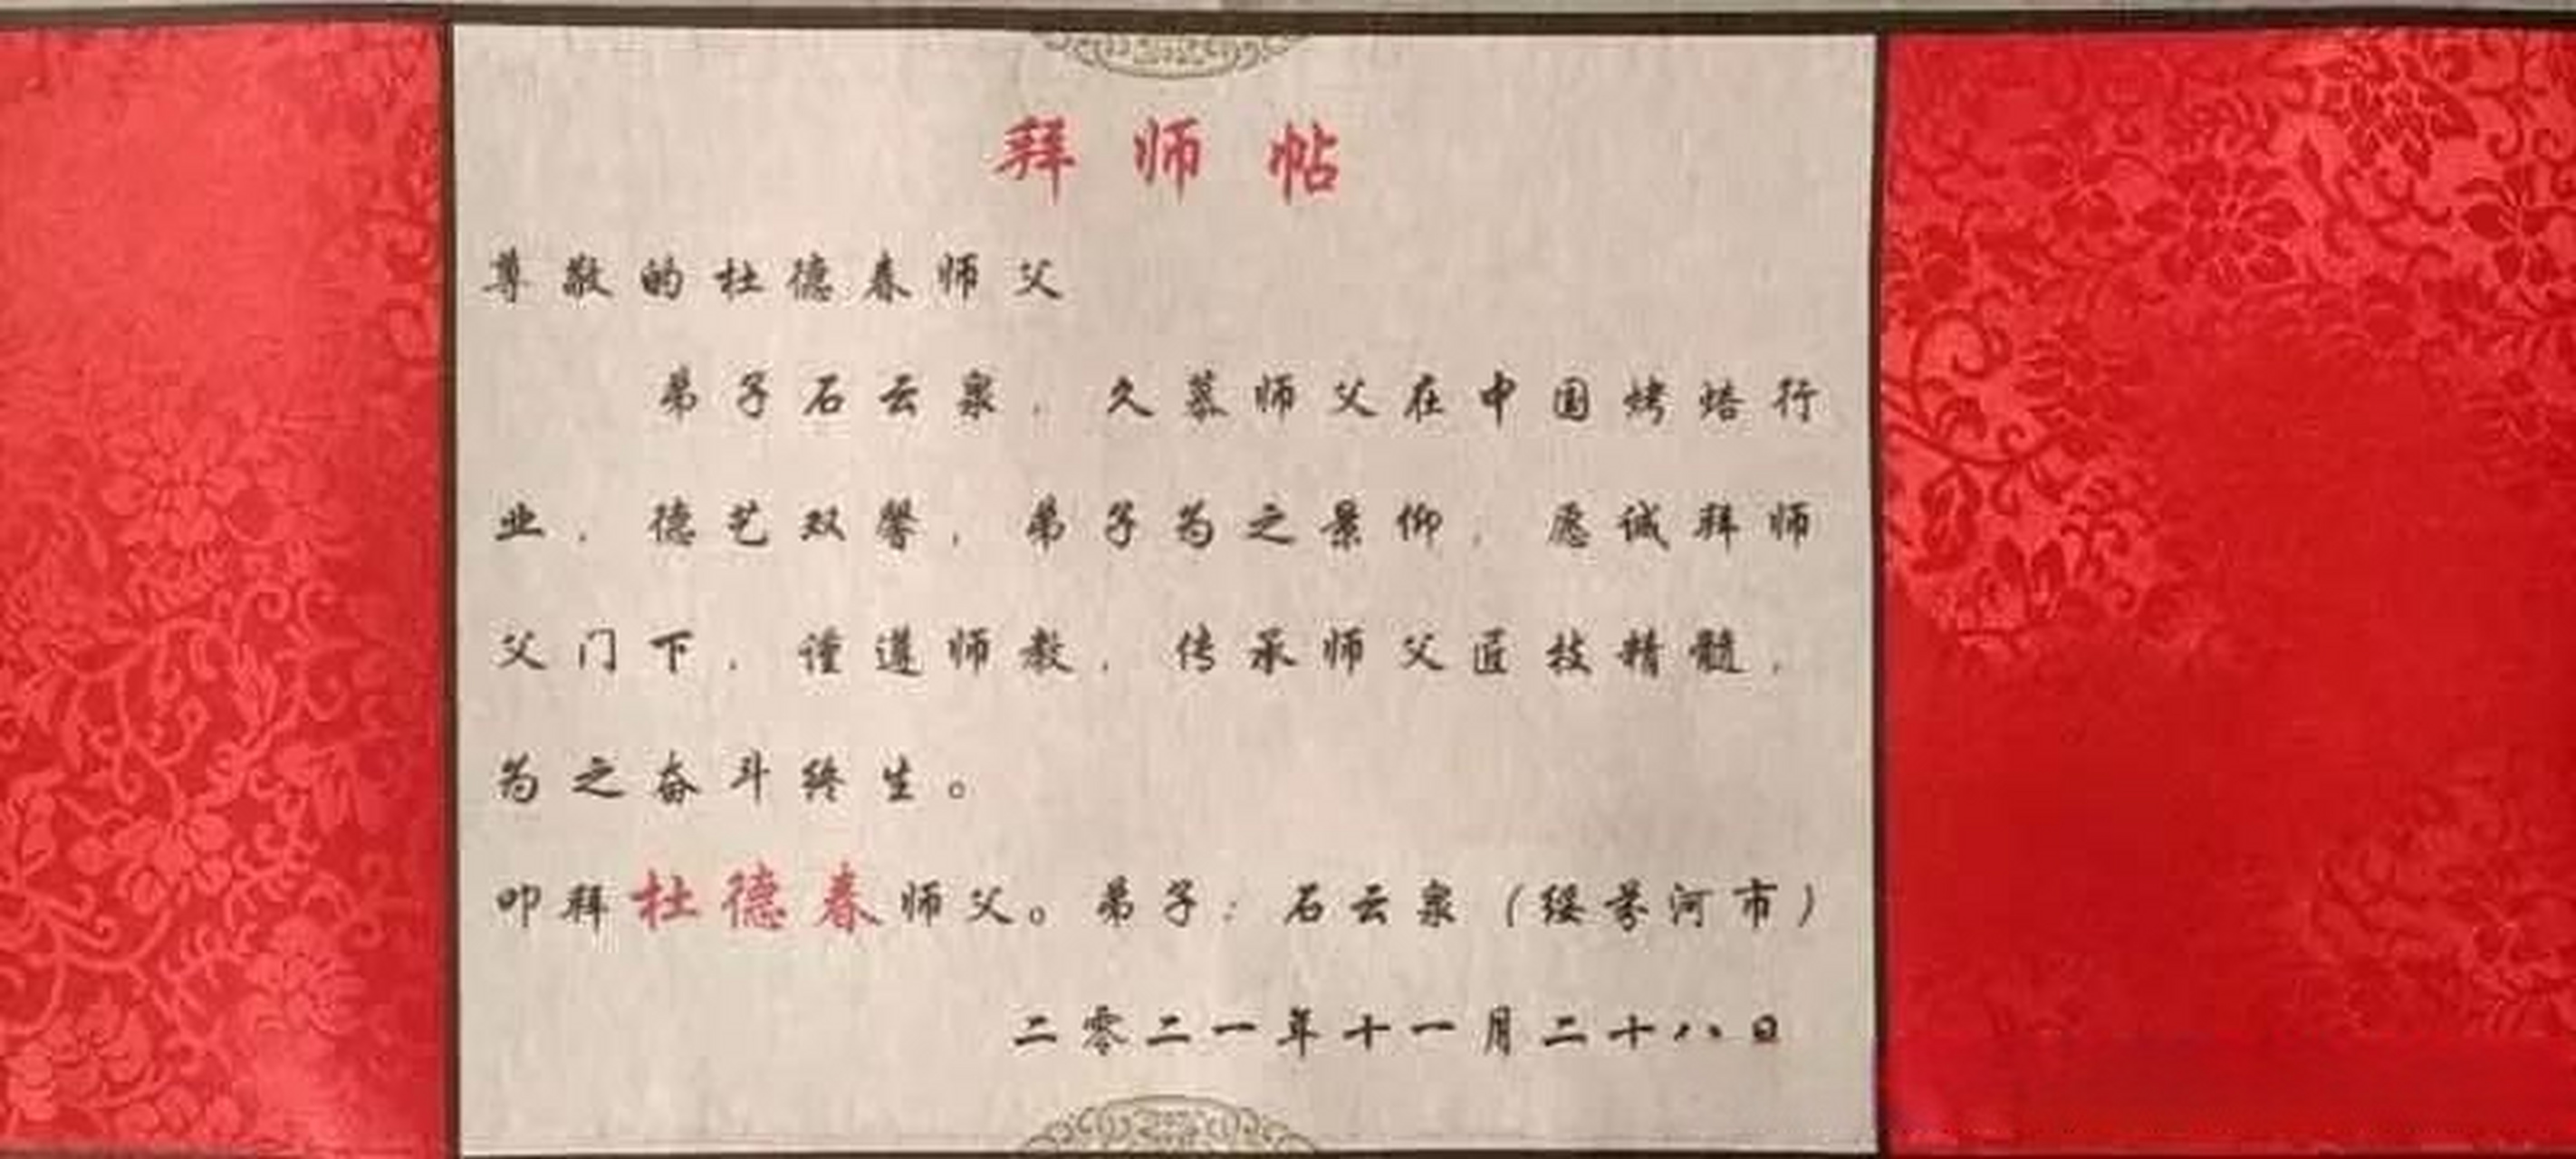 拜师帖
尊敬的杜德春师父
弟子石云泉，久慕师父在中国烤焙行
业，德艺双馨，弟子为之景仰，愿诚拜师
父门下，谨遵师教，传承师父匠技精髓，
为之奋斗终生。
叩拜杜德春师父。弟子：石云泉（绥芬河市）
二零二一年十一月二十八日